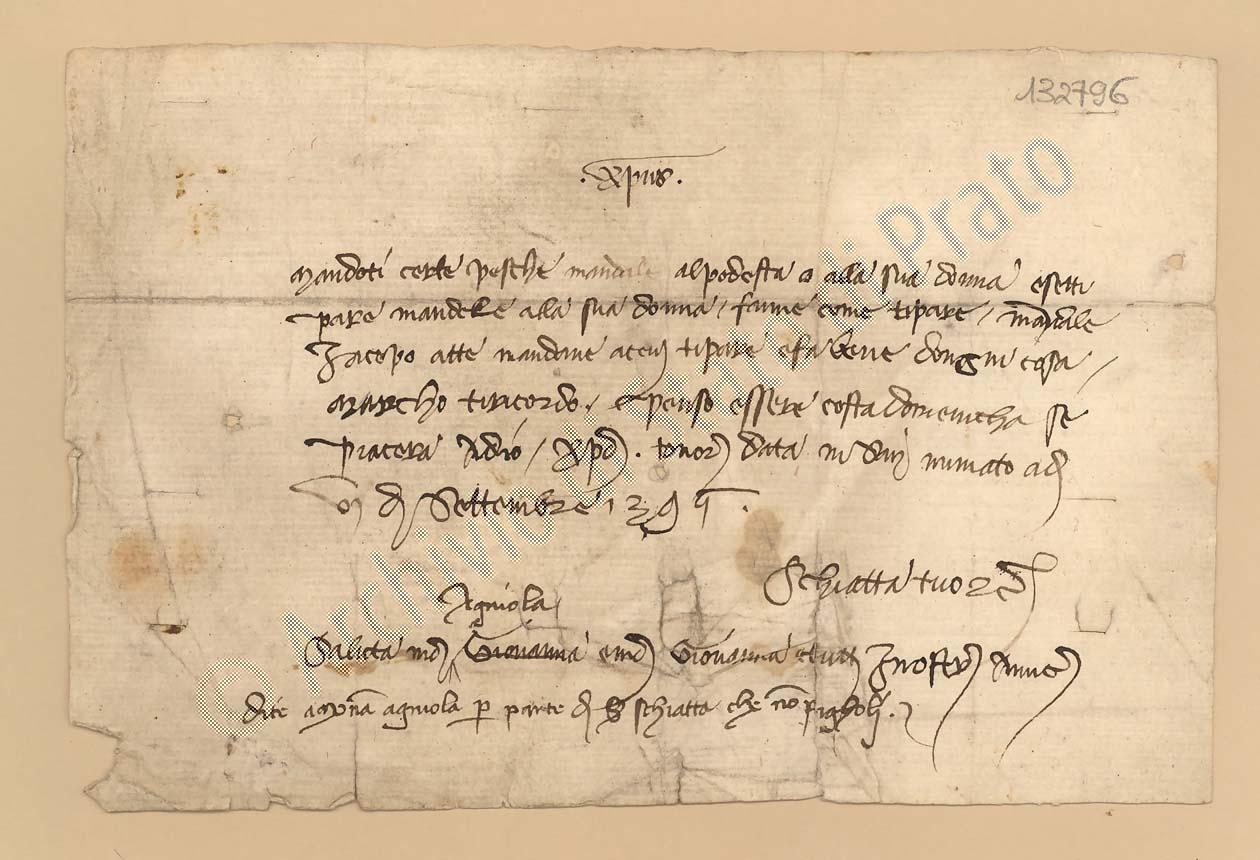 132796
.xpus.
mandoti certe pesche mandale al podesta o alla sua donna e setti
pare mandele alla sua donna / fanne come ti pare / mandale
Jacopo atte mandane a cui ti pare e fa bene dongni cosa /
Marcho ti ricordo. e penso essere costa domenicha se
piacera a dio / data in San miniato a d
vj d Settembre 139
Schiatta tuo
Agniola
Saluta Giovanna e Giovanna e
dite a mona agniola per parte d schiatta che non pigholj.
© Archivio di Stato di Prato